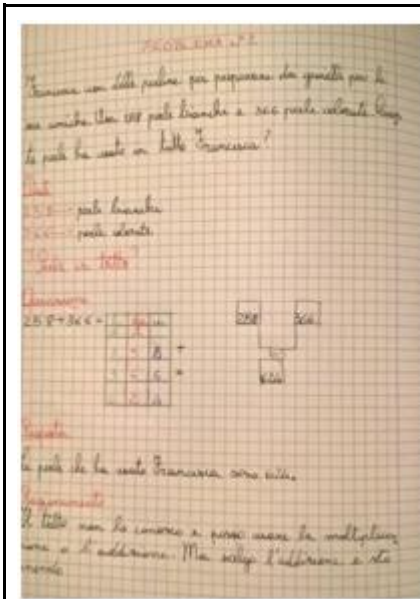 PROBLEMA N°2
Francesca usa delle perline per preparare dei gioielli per le
sue amiche. Usa 258 perle bianche e 366 perle colorate. Quan
te perle ha usato in tutto Francesca?
Dati
258 = perle bianche
366 = perle colorate
? Perle in tutto
Operazione
258+366=
h da u
2 5 8 +
3 6 6 =
6 2 4
258 366
624
Risposta
Le perle che ha usato Francesca sono 624.
Ragionamento
Il tutto non lo conosco e posso usare la moltiplicaz
ione o l'addizione. Ma scelgo l'addizione e sto